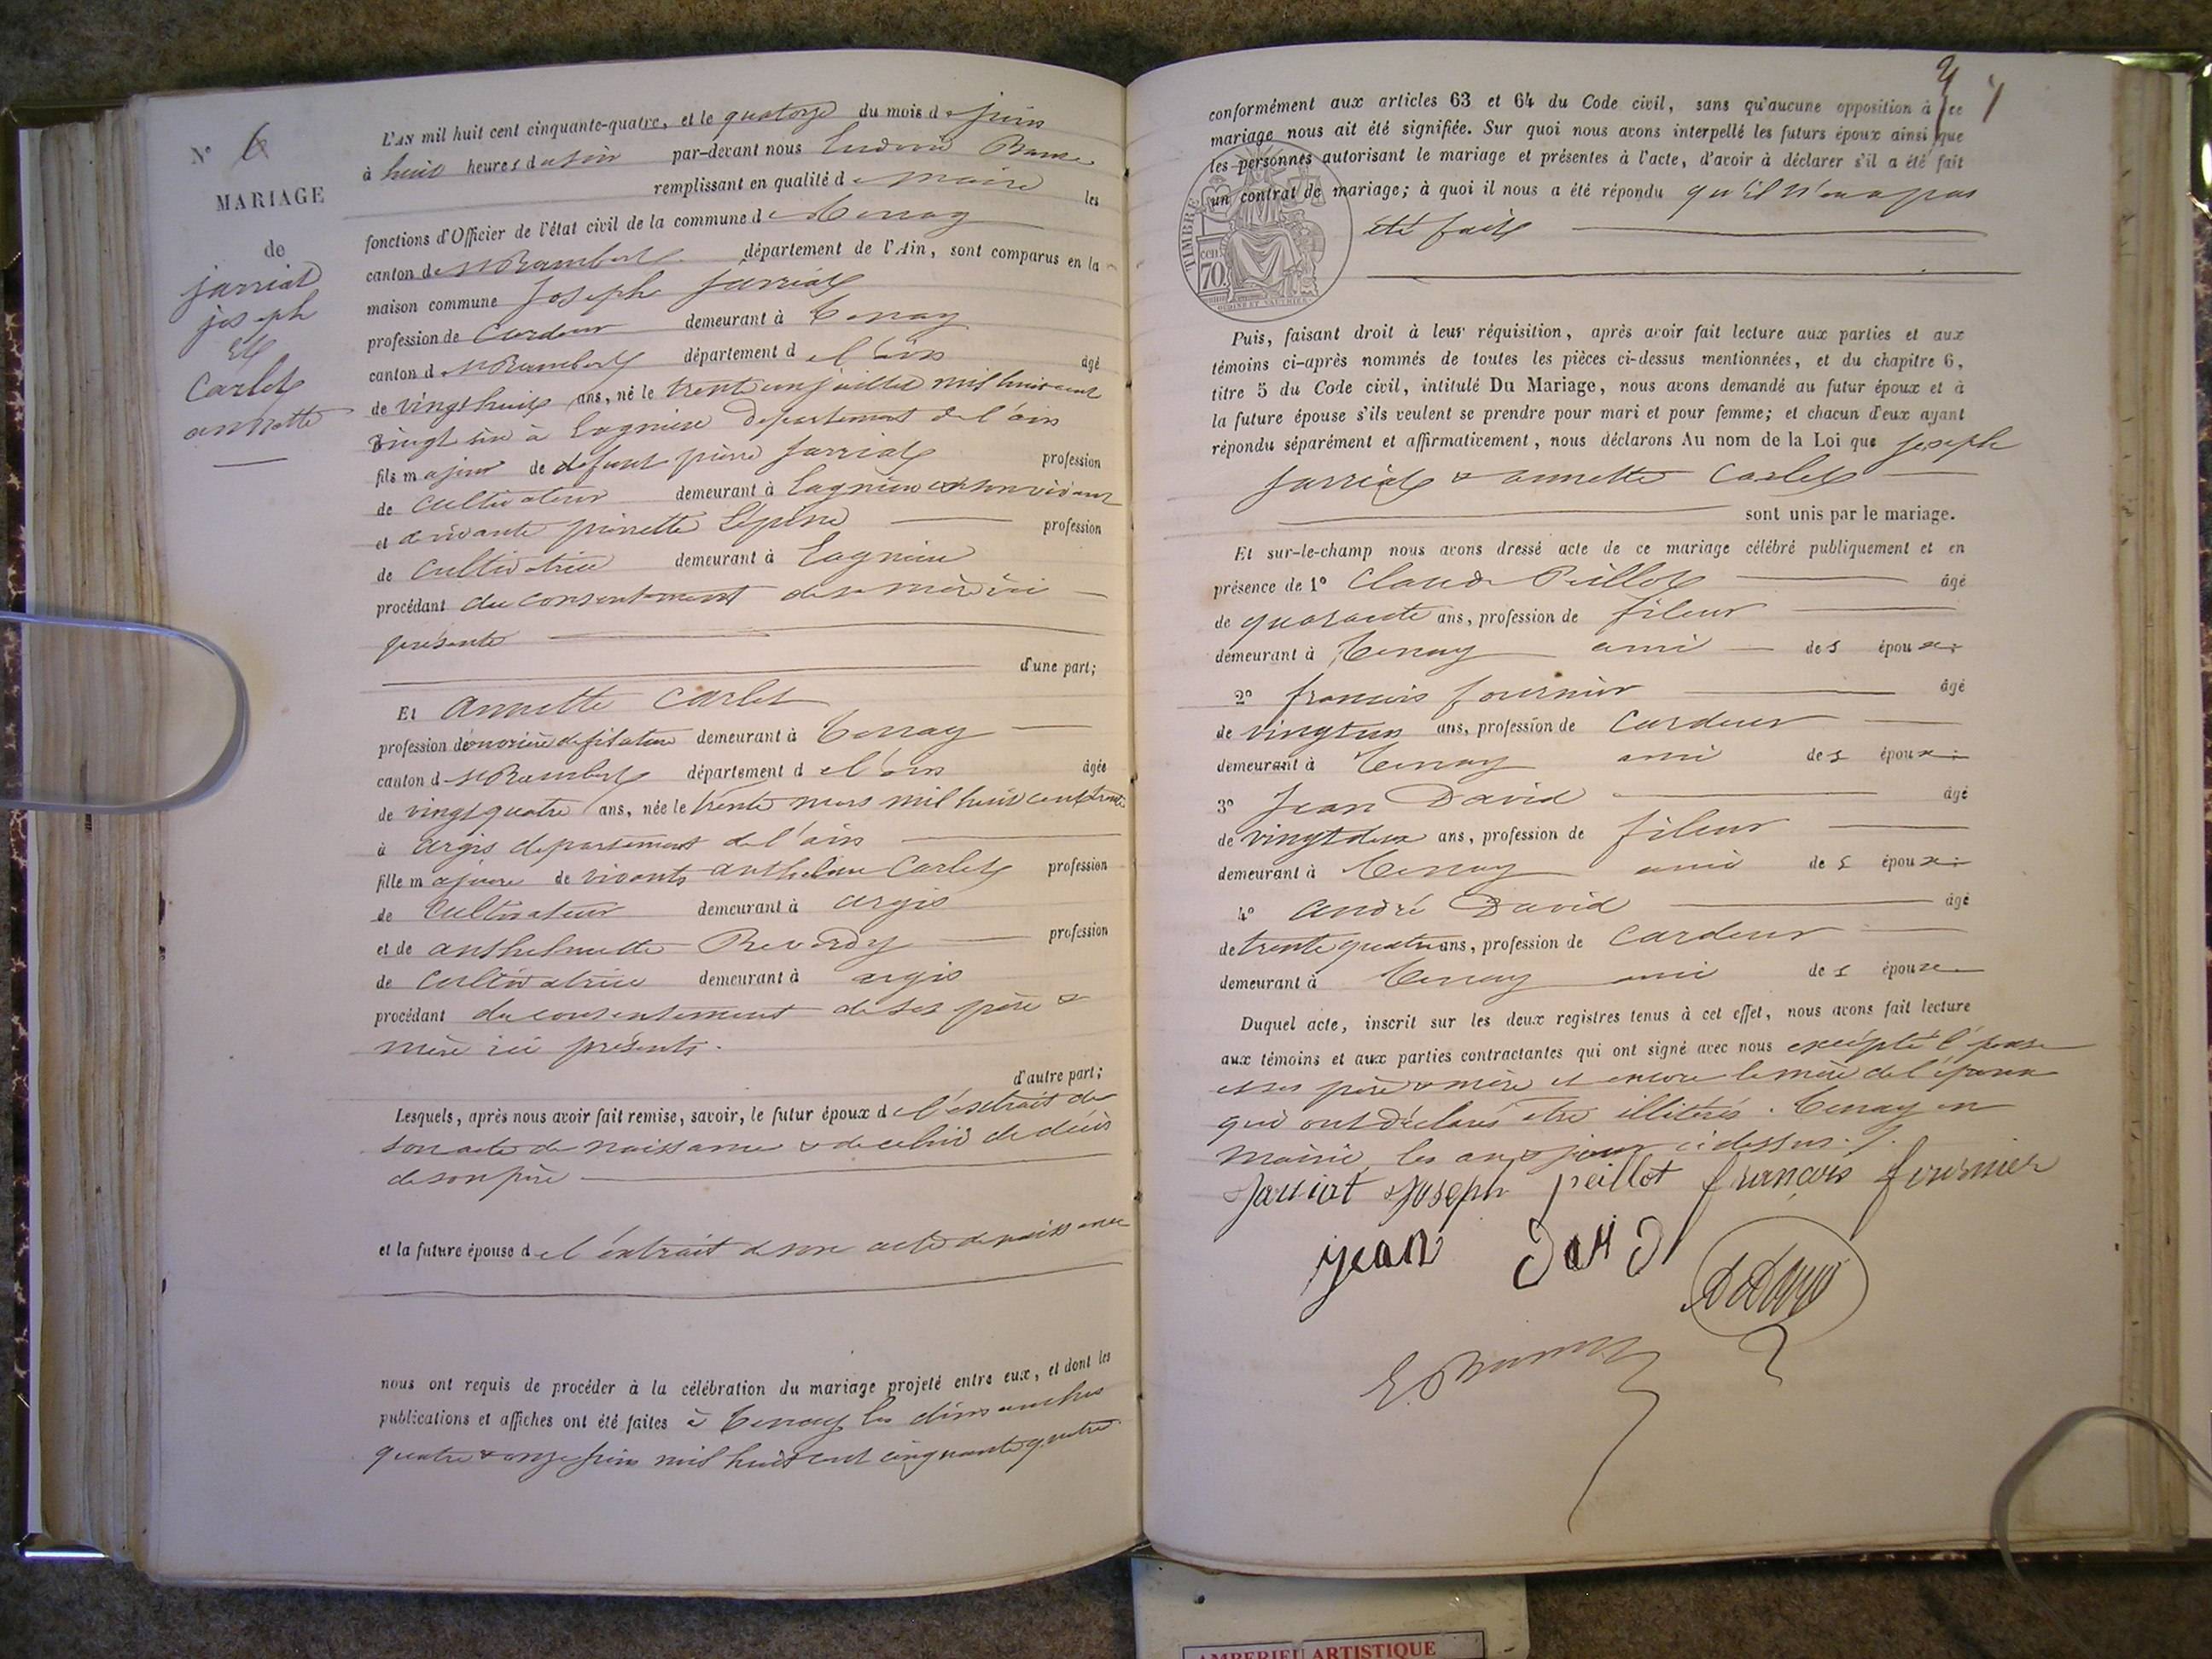 N° 6
MARIAGE
de
jarriat
joseph
Et
Carlet
annette
L'AN mil huit cent cinquante-quatre, et le quatorze du mois de juin
à huit heures du soir par-devant nous
remplissant en qualité de maire les
fonctions d'Officier de l'état civil de la commune de Tenay
canton de St Rambert département de l'Ain, sont comparus en la
maison commune Joseph Jarriat
profession de Cardeur demeurant à Tenay
canton de St Rambert département de l'ain âgé
de vingt huit ans, né le trente un juillet mil huit cent
vingt six à Lagnieu departement de l'ain
fils majeur de defunt pierre Jarriat profession
de Cultivateur demeurant à Lagnieu en son vivant
et de vivante pierrette Lépine profession
de Cultivatrice demeurant à Lagnieu
procédant du consentement de sa mère ici
présente
d'une part;
Et annette Carlet
profession d'ouvrière de filature demeurant à Tenay
canton de St Rambert département de l'ain âgée
de vingt quatre ans, née le trente mars mil huit cent trente
à argis departement de l'ain
fille majeure de vivants anthelme Carlet profession
de Cultivateur demeurant à argis
et de anthelmette Reverdy profession
de Cultivatrice demeurant à argis
procédant du consentement de ses père &
mère ici présents.
d'autre part;
Lesquels, après nous avoir fait remise, savoir, le futur époux de l'extrait de
son acte de naissance & de celui de décès
de son père
et la future épouse de l'extrait de son acte de naissance
nous ont requis de procéder à la célébration du mariage projeté entre eux, et dont les
publications et affiches ont été faites à Tenay les dimanches
quatre & onze juin mil huit cent cinquante quatre
conformément aux articles 63 et 64 du Code civil, sans qu'aucune opposition à ce
mariage nous ait été signifiée. Sur quoi nous avons interpellé les futurs époux ainsi que
les personnes autorisant le mariage et présentes à l'acte, d'avoir à déclarer s'il a été fait
un contrat de mariage; à quoi il nous a été répondu qu'il n'en a pas
été fait
TIMBRE
cen
70.
Puis, faisant droit à leur réquisition, après avoir fait lecture aux parties et aux
témoins ci-après nommés de toutes les pièces ci-dessus mentionnées, et du chapitre 6,
titre 5 du Code civil, intitulé Du Mariage, nous avons demandé au futur époux et à
la future épouse s'ils veulent se prendre pour mari et pour femme; et chacun d'eux ayant
répondu séparément et affirmativement, nous déclarons Au nom de la Loi que joseph
Jarriat & annette Carlet
sont unis par le mariage.
Et sur-le-champ nous avons dressé acte de ce mariage célébré publiquement et en
présence de 1° Claude Peillot âgé
de quarante ans, profession de fileur
demeurant à Tenay ami des époux
2° francois fournier âgé
de vingt un ans, profession de Cardeur
demeurant à Tenay ami des époux
3° Jean David âgé
de vingt deux ans, profession de fileur
demeurant à Tenay ami des époux
4° andré David âgé
de trente quatre ans, profession de Cardeur
demeurant à Tenay ami des époux
Duquel acte, inscrit sur les deux registres tenus à cet effet, nous avons fait lecture
aux témoins et aux parties contractantes qui ont signé avec nous excépté l'épouse
et ses père & mère et encore la mère de l'époux
qui ont déclarés être illitérés. Tenay en
mairie, les an & jour ci dessus.
Jarriat Joseph peillot françois fournier
jean David
AMBERIEU ARTISTIQUE